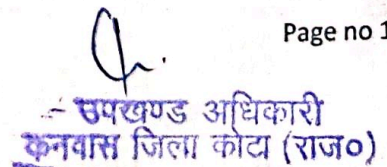 Page no 1
उपखण्ड अधिकारी
कनवास जिला कोटा (राज०)